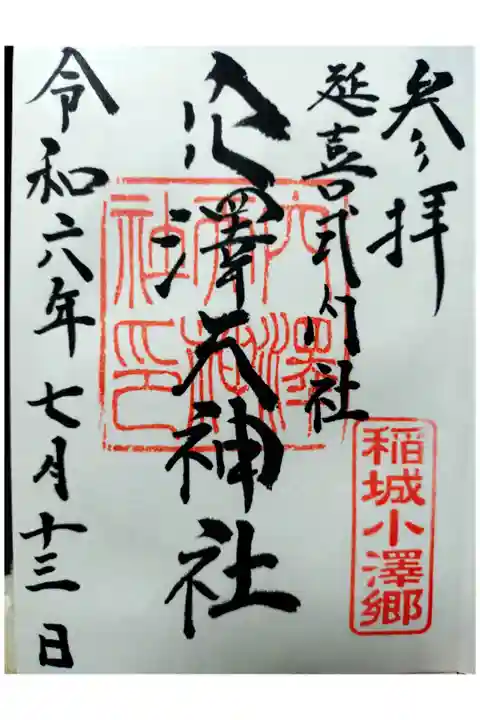 参拝
延喜式内社
穴澤天神社
令和六年七月十三日
稲城小澤郷
穴澤
天神
社印